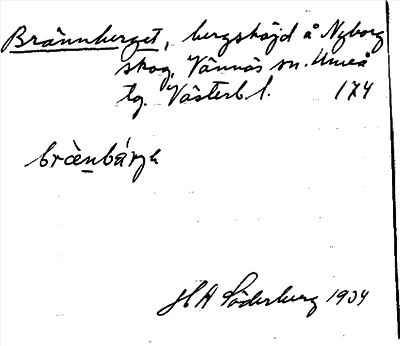 Brännberget, bergshöjd å Nyborg
skog, Vännäs sn. Umeå
tg. Västerb l. 174
brä̀nbárjə
H A Söderberg 1934